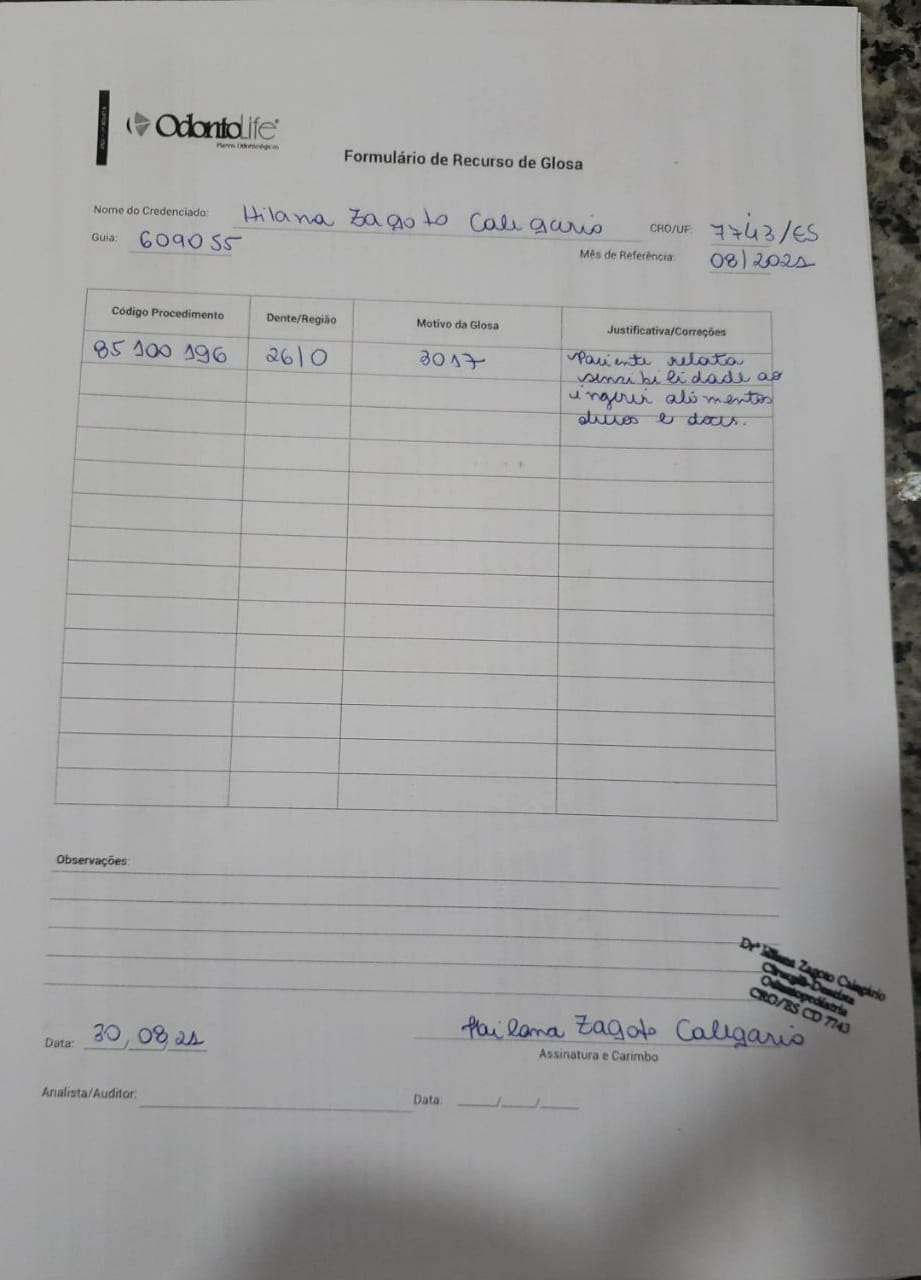 OdontoLife®
Planos Odontológicos
Formulário de Recurso de Glosa
Nome do Credenciado: Hilana Zagoto Caligario CRO/UF: 7743/ES
Guia: 609055
Mês de Referência: 08/2021
Código Procedimento Dente/Região Motivo da Glosa Justificativa/Correções
85 100 196 26/O 3017 Paciente relata
sensibilidade ao
ingerir alimentos
duros e doces.
Observações:
Zagoto Caligário
Cirurgiã-Dentista
Odontopediatria
CRO/ES CD 7743
Data: 30/08/21 Hailana Zagoto Caligario
Assinatura e Carimbo
Analista/Auditor: Data: __/__/__